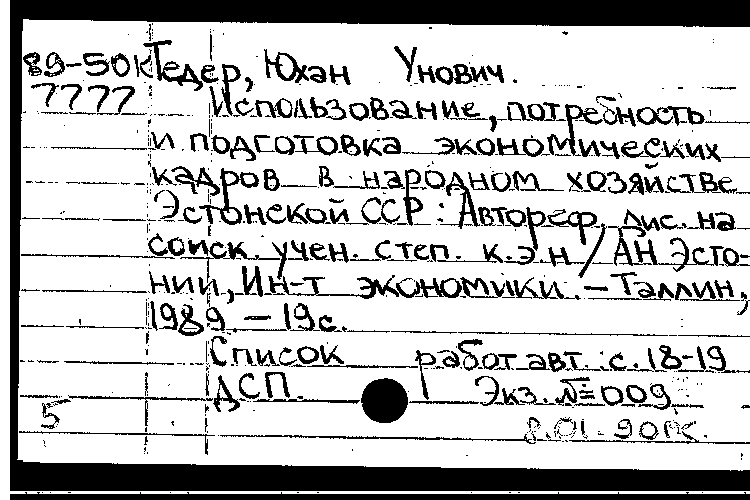 89-50К Тедер, Юхан Унович.
7777 Использование, потребность
и подготовка экономических
кадров в народном хозяйстве
Эстонской ССР: Автореф. дис. на
соиск. учен. степ. к.э.н / АН Эсто-
нии, Ин-т экономики. – Таллин,
1989 – 19с.
Список работ авт.: с. 18-19
ДСП. Экз. №009
5
8.01.90